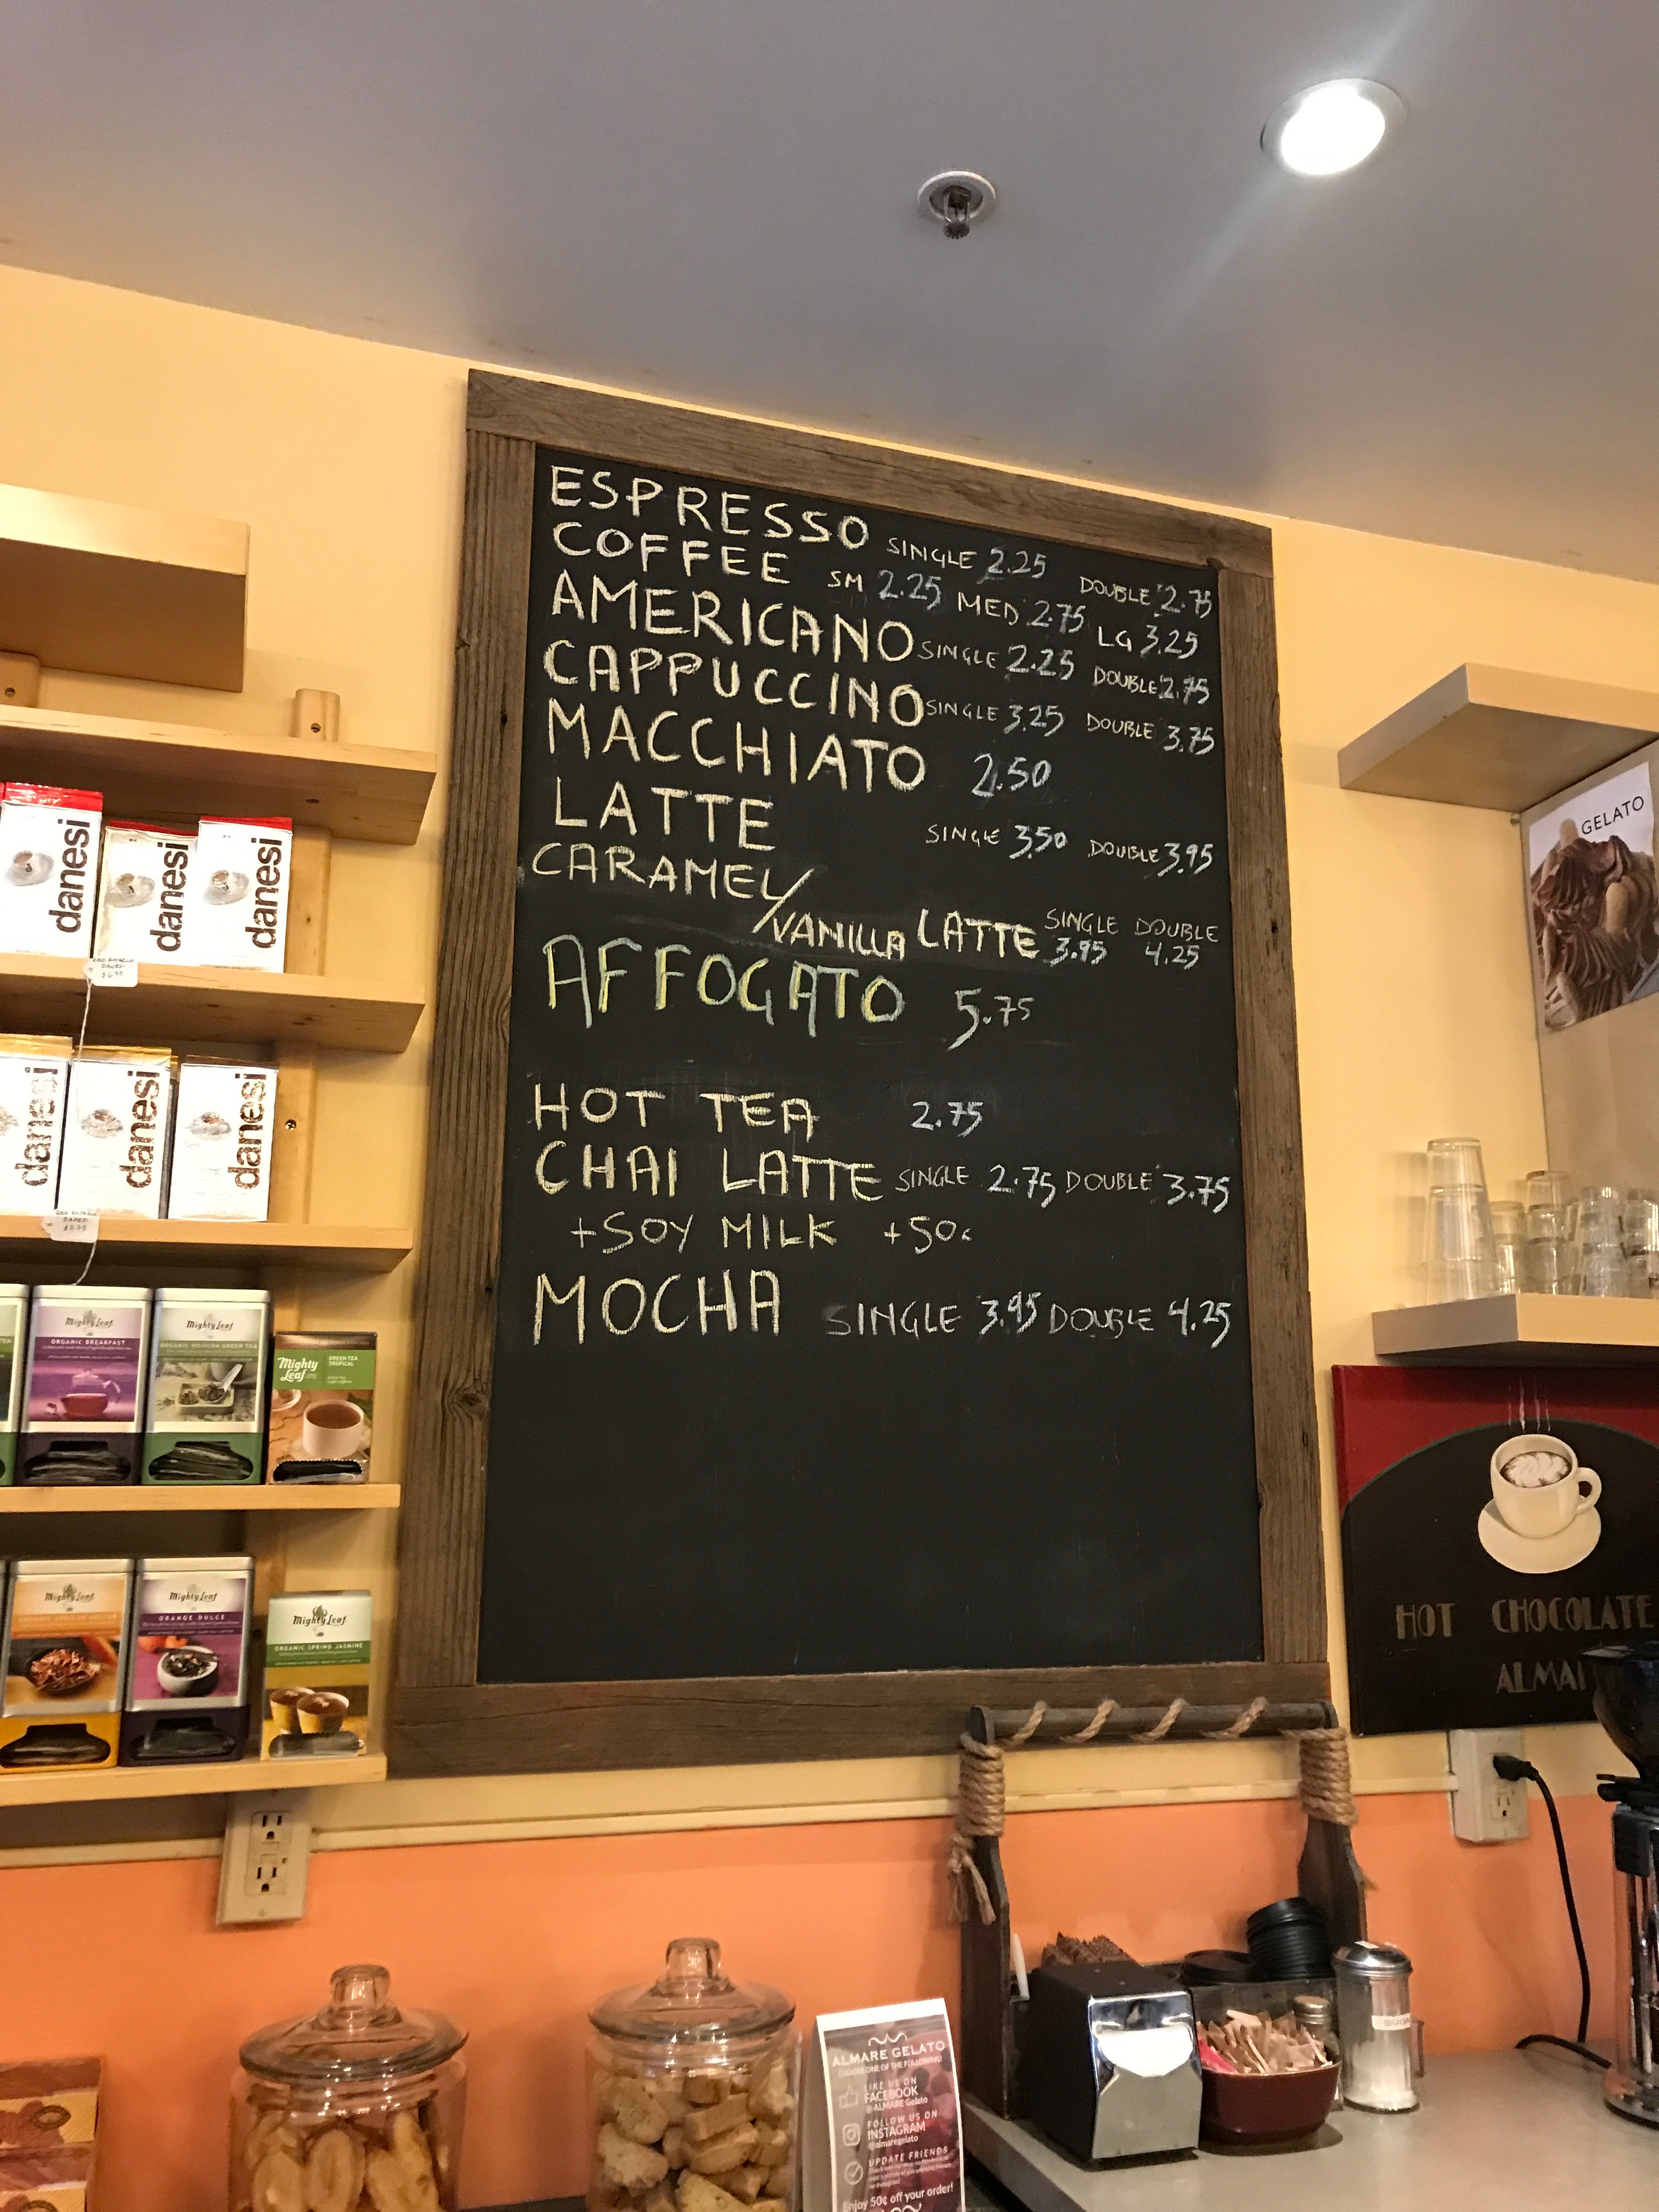 ESPRESSO SINGLE 2.25 DOUBLE 2.75
COFFEE SM 2.25 MED 2.75 LG 3.25
AMERICANO SINGLE 2.25 DOUBLE 2.75
CAPPUCCINO SINGLE 3.25 DOUBLE 3.75
MACCHIATO 2.50
LATTE SINGLE 3.50 DOUBLE 3.95
CARAMEL/
VANILLA LATTE SINGLE 3.95 DOUBLE 4.25
AFFOGATO 5.75
HOT TEA 2.75
CHAI LATTE SINGLE 2.75 DOUBLE 3.75
+SOY MILK +50¢
MOCHA SINGLE 3.95 DOUBLE 4.25
danesi
danesi
danesi
danesi
danesi
danesi
Mighty Leaf
ORGANIC BREAKFAST
Mighty Leaf
ORGANIC HOJICHA GREEN TEA
Mighty Leaf
GREEN TEA
TROPICAL
Mighty Leaf
ORGANIC AFRICAN NECTAR
Mighty Leaf
ORANGE DULCE
Mighty Leaf
ORGANIC SPRING JASMINE
GELATO
HOT CHOCOLATE
ALMA
ALMARE GELATO
CHOOSE ONE OF THE FOLLOWING!
LIKE US ON
FACEBOOK
@ALMARE Gelato
FOLLOW US ON
INSTAGRAM
@almaregelato
UPDATE FRIENDS
Enjoy 50¢ off your order!